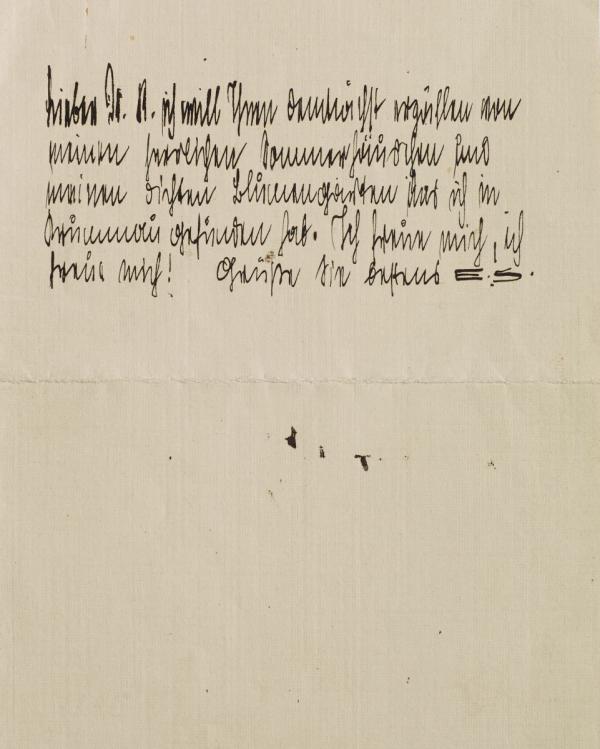 Lieber Dr. R. ich will Ihnen demnächst erzählen von
meinem herrlichen Sommerhäuschen und
meinen dichten Blumengarten das ich in
Krummau gefunden hab. Ich freue mich, ich
freue mich! Grüße Sie bestens E.S.